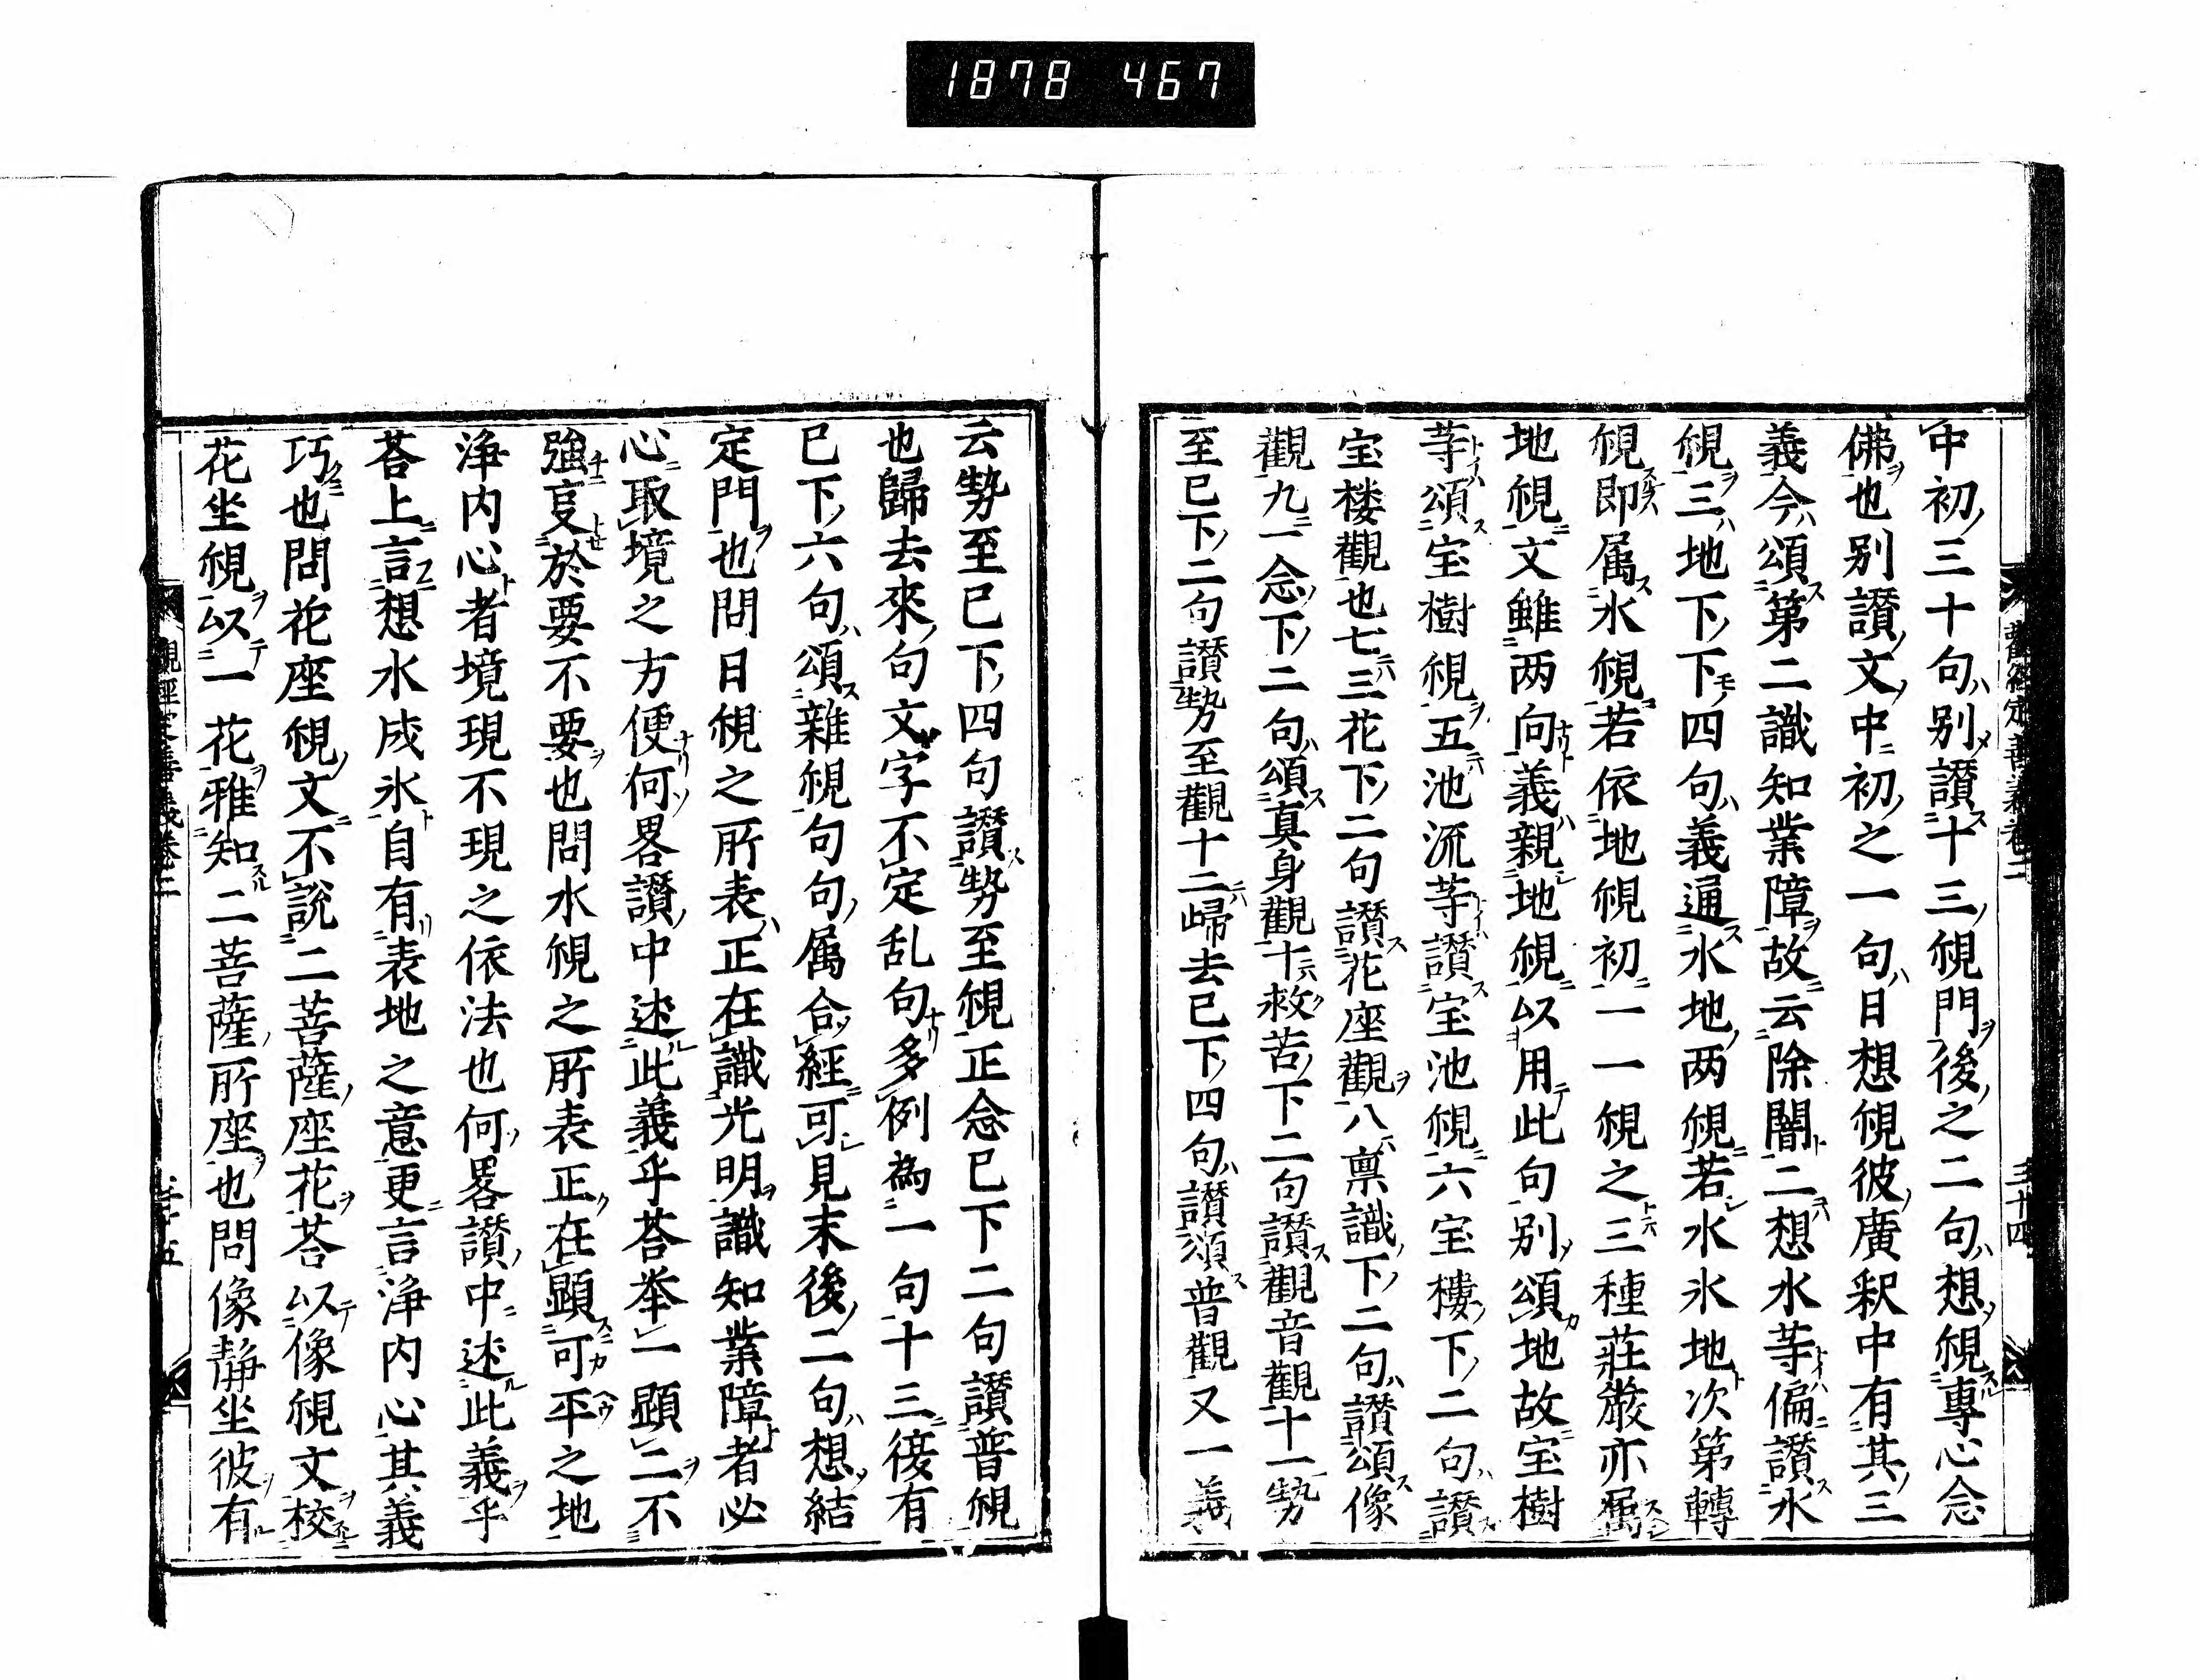 1878 467
中初三十句別讃十三覌門後之二句想覌專心念
佛也別讃文中初之一句日想覌彼廣釈中有其三
義今頌第二識知業障故云除闇二想水等偏讃水
覌三地下下四句義通水地两覌若水氷地次第轉
覌即属水覌若依地覌初一一覌之三種莊嚴亦属
地覌文雖两向義親地覌以用此句別頌地故宝樹
等頌宝樹覌五池流等讃宝池覌六宝樓下二句讃
宝楼觀也七三花下二句讃花座觀八禀識下二句讃頌像
觀九一念下二句頌真身觀十救苦下二句讃觀音觀十一勢
至已下二句讃勢至觀十二歸去已下四句讃頌普觀又一義
三十四
云勢至已下四句讃勢至覌正念已下二句讃普覌
也歸去來句文字不定乱句多例為一句十三後有
已下六句頌雜覌句句属合經可見末後二句想結
定門也問日覌之所表正在識光明識知業障者必
心取境之方便何畧讃中述此義乎荅举一顯二不
強㕝於要不要也問水覌之所表正在顯可平之地
浄内心者境現不現之依法也何畧讃中述此義乎
荅上言想水成氷自有表地之意更言浄内心其義
巧也問花座覌文不說二菩薩座花荅以像覌文挍
花坐覌以一花雅知二菩薩所座也問像靜坐彼有